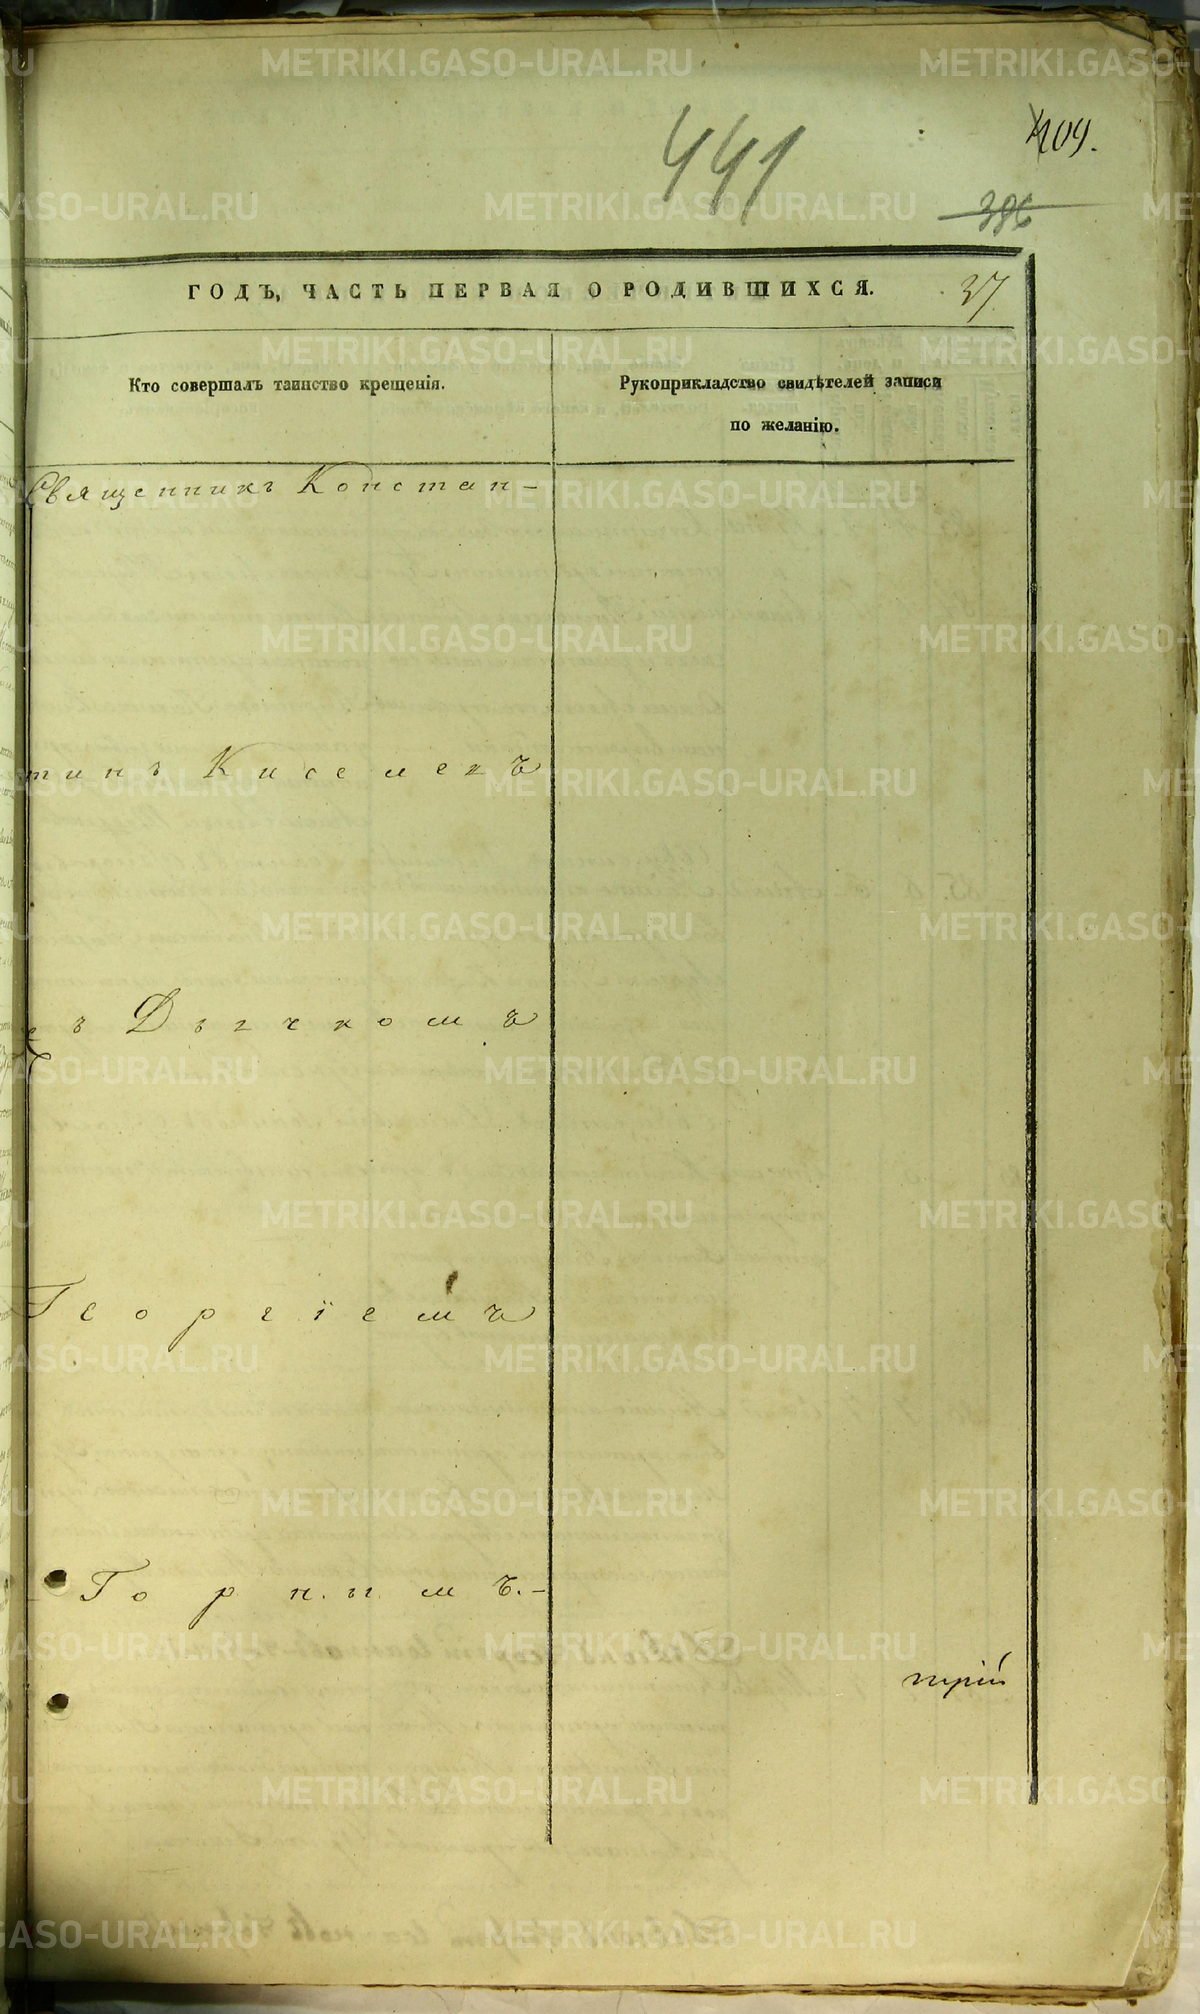 441
109.
386
ГОДЪ, ЧАСТЬ ПЕРВАЯ О РОДИВШИХСЯ.
37
Кто совершалъ таинство крещенія.
Рукоприкладство свидѣтелей записи
по желанію.
Священникъ Констан-
тинъ Киселевъ
съ Дьячкомъ
Георгіемъ
Горныхъ.-
METRIKI.GASO-URAL.RU